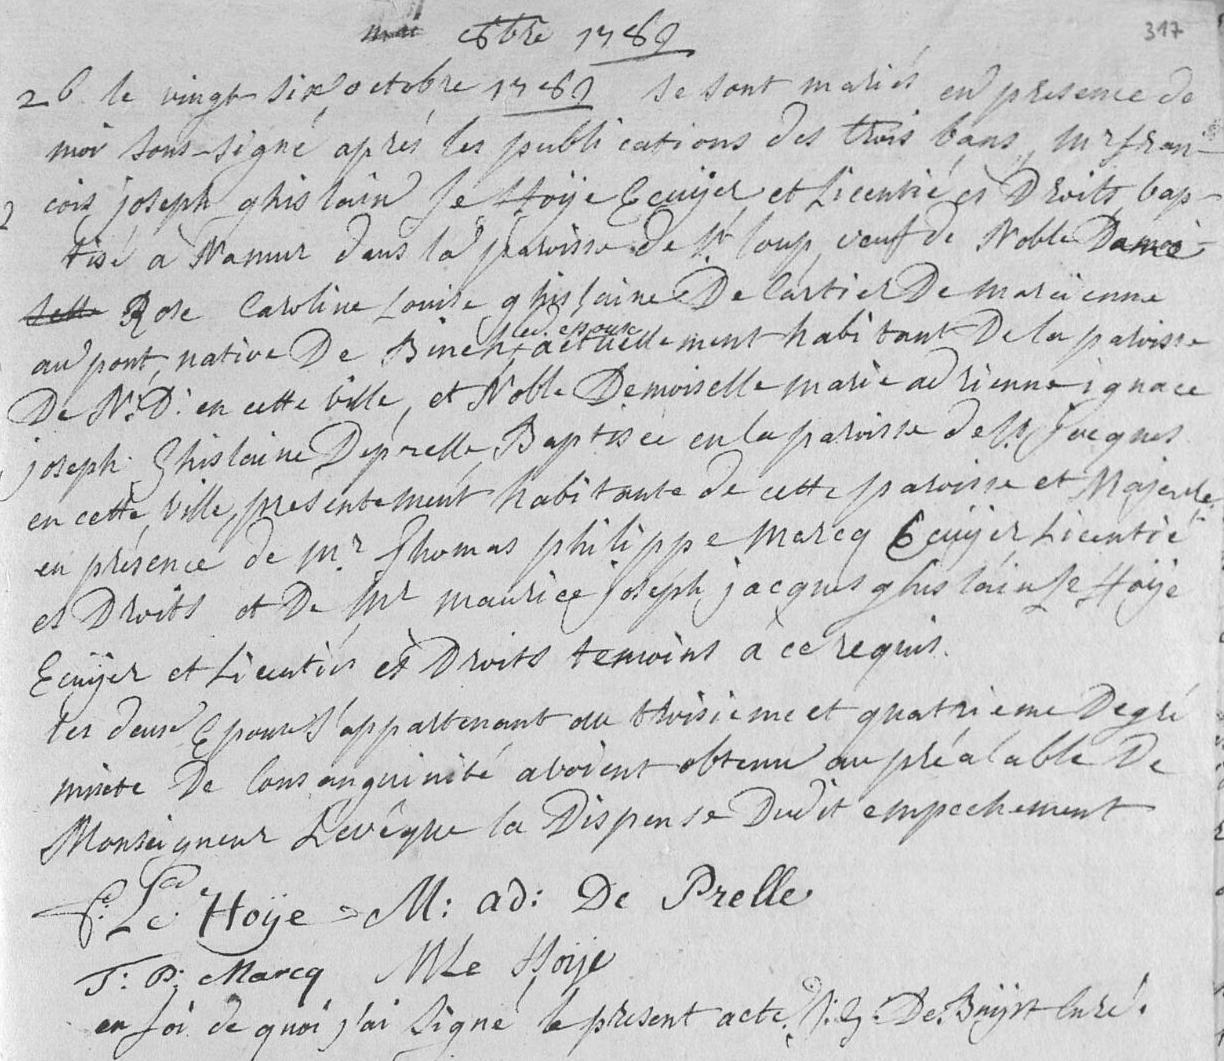 8bre 1789
317
26 le vingt six octobre 1789 se sont mariés en presence de
moi sous-signé aprés les publications des trois bans, Mr fran-
cois joseph ghislain Le Hoÿe Ecuÿer et Licentié es Droits bap-
tisé a Namur dans la paroisse de St loup, veuf de Noble Dame
Rose Caroline Louise ghislaine De Cartier De marcienne
au pont, native De Binch,
les epoux
actuellement habitant De la paroisse
De N: D: en cette ville, et Noble Demoiselle marie adrienne ignace
joseph Ghislaine Deprelle, Baptisée en la paroisse de St Jacques
en cette ville, presentement habitante de cette paroisse et Majeure,
en présence de Mr Thomas philippe Marcq Ecuÿer Licentié
es Droits et De Mr maurice joseph jacques ghislain Le Hoÿe
Ecuÿer et Licentiés ès Droits temoins a ce requis.
les deux Epoux s'appartenant au troisieme et quatrieme Degré
mixte De Consanguinité avoient obtenu au préalable De
Monseigneur Levêque la Dispense Dudit empechement
Le Hoÿe M: ad: De Prelle
T: P: Marcq M Le Hoÿe
en foi de quoi j'ai signé le present acte, De Buÿst Curé.